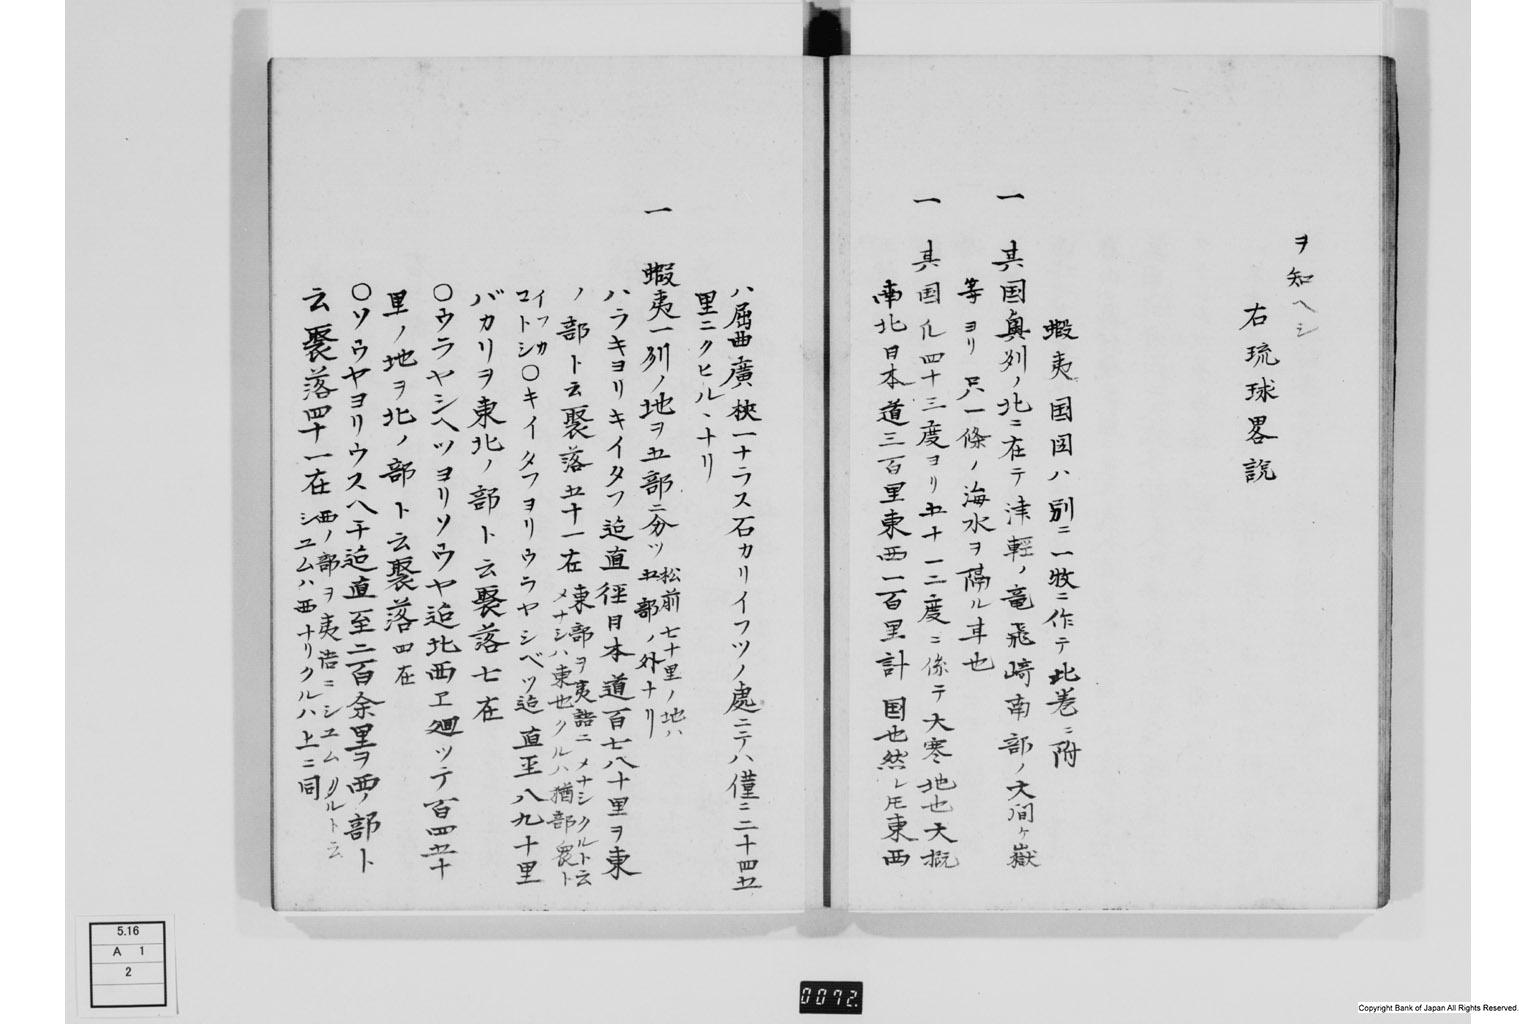 ヲ知ヘシ
右琉球畧説
蝦夷国図ハ別ニ一枚ニ作テ此巻ニ附
一 其国奥州ノ北ニ在テ津軽ノ竜飛崎南部ノ大間ヶ嶽
等ヨリ只一條ノ海水ヲ隔ル耳也
一 其国凡四十三度ヨリ五十一二度ニ係テ大寒地也大概
南北日本道三百里東西一百里計国也然レ𪜈東西
ハ屈曲廣狭一ナラス石カリイフツノ處ニテハ僅ニ二十四五
里ニクヒルヽナリ
一 蝦夷一州ノ地ヲ五部ニ分ツ松前七十里ノ地ハ
五部ノ外ナリ
ハラキヨリキイタフ迠直徑日本道百七八十里ヲ東
ノ部ト云聚落五十一在東部ヲ夷語ニメナシクルト云
メナシハ東也クルハ猶部衆ト
イフカ
コトシ〇キイタフヨリウラヤシベツ迠直至八九十里
バカリヲ東北ノ部ト云聚落七在
〇ウラヤシヘツヨリソウヤ迠北西ヱ廻ツテ百四五十
里ノ地ヲ北ノ部ト云聚落四在
〇ソウヤヨリウスヘチ迠直至二百余里ヲ西ノ部ト
云聚落四十一在西ノ部ヲ夷語ニシユムクルト云
シユムハ西ナリクルハ上ニ同
5.16
A 1
2
0072.
Copyright Bank of Japan All Rights Reserved.